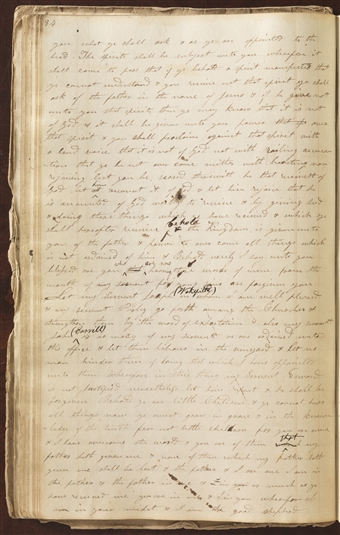 84
you what ye shall ask & as ye are appointed to the
head The spirits shall be subject unto you wherefore it
shall come to pass that if ye behold a spirit manifested that
ye cannot understand & you receive not that spirit ye shall
ask of the father in the name of Jesus & if he give not
unto you that spirit that ye may know that it is not
of God & it shall be given unto you power over
that spirit & you shall proclaim against that spirit with
a loud voice that it is not of God not with railing accusa
tion that ye be not over come neither with boasting nor
rejoicing lest you be seized therewith he that receiveth of
God let him account it of God & let him rejoice that he
is accounted of God worthy to receive & by giving heed
& doing these things which ye have received & which ye
shall hereafter receive & the Kingdom is given unto
Behold
you of the father & power to over come all things which
is not ordained of him & Behold verily I say unto you
blessed are you who are now hearing these words of mine from the
mouth of my servant for your sins are forgiven you
Let my servant Joseph (Wakefield) in whom I am well pleased
& my servant Parley go forth among the Churches &
strengthen them by the word of exhortation & also my servant
John (Corrill) or as many of my servants as are ordained unto
this office & let them labour in the vineyard & let no
man hinder them of doing that which I have appointed
unto them wherefore in this thing my servant Edward
is not justified nevertheless let him repent & he shall be
forgiven Behold ye are little Children & ye cannot bear
all things now ye must grow in grace & in the know
ledge of the truth fear not little children for you are mine
& I have overcome the world & you are of them that my
father hath given me & none of them which my father hath
given me shall be lost & the father & I are one I am in
the father & the father in me & in as much as ye
have received me you are in me & I in you wherefore I
am in your midst & I am the good shepherd